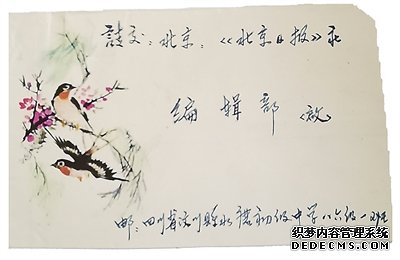 請交：北京：《北京日报》社
编辑部《收》
邮：四川省汶川县水磨初级中学八六级一班
织梦内容管理系统
DEDECMS.COM